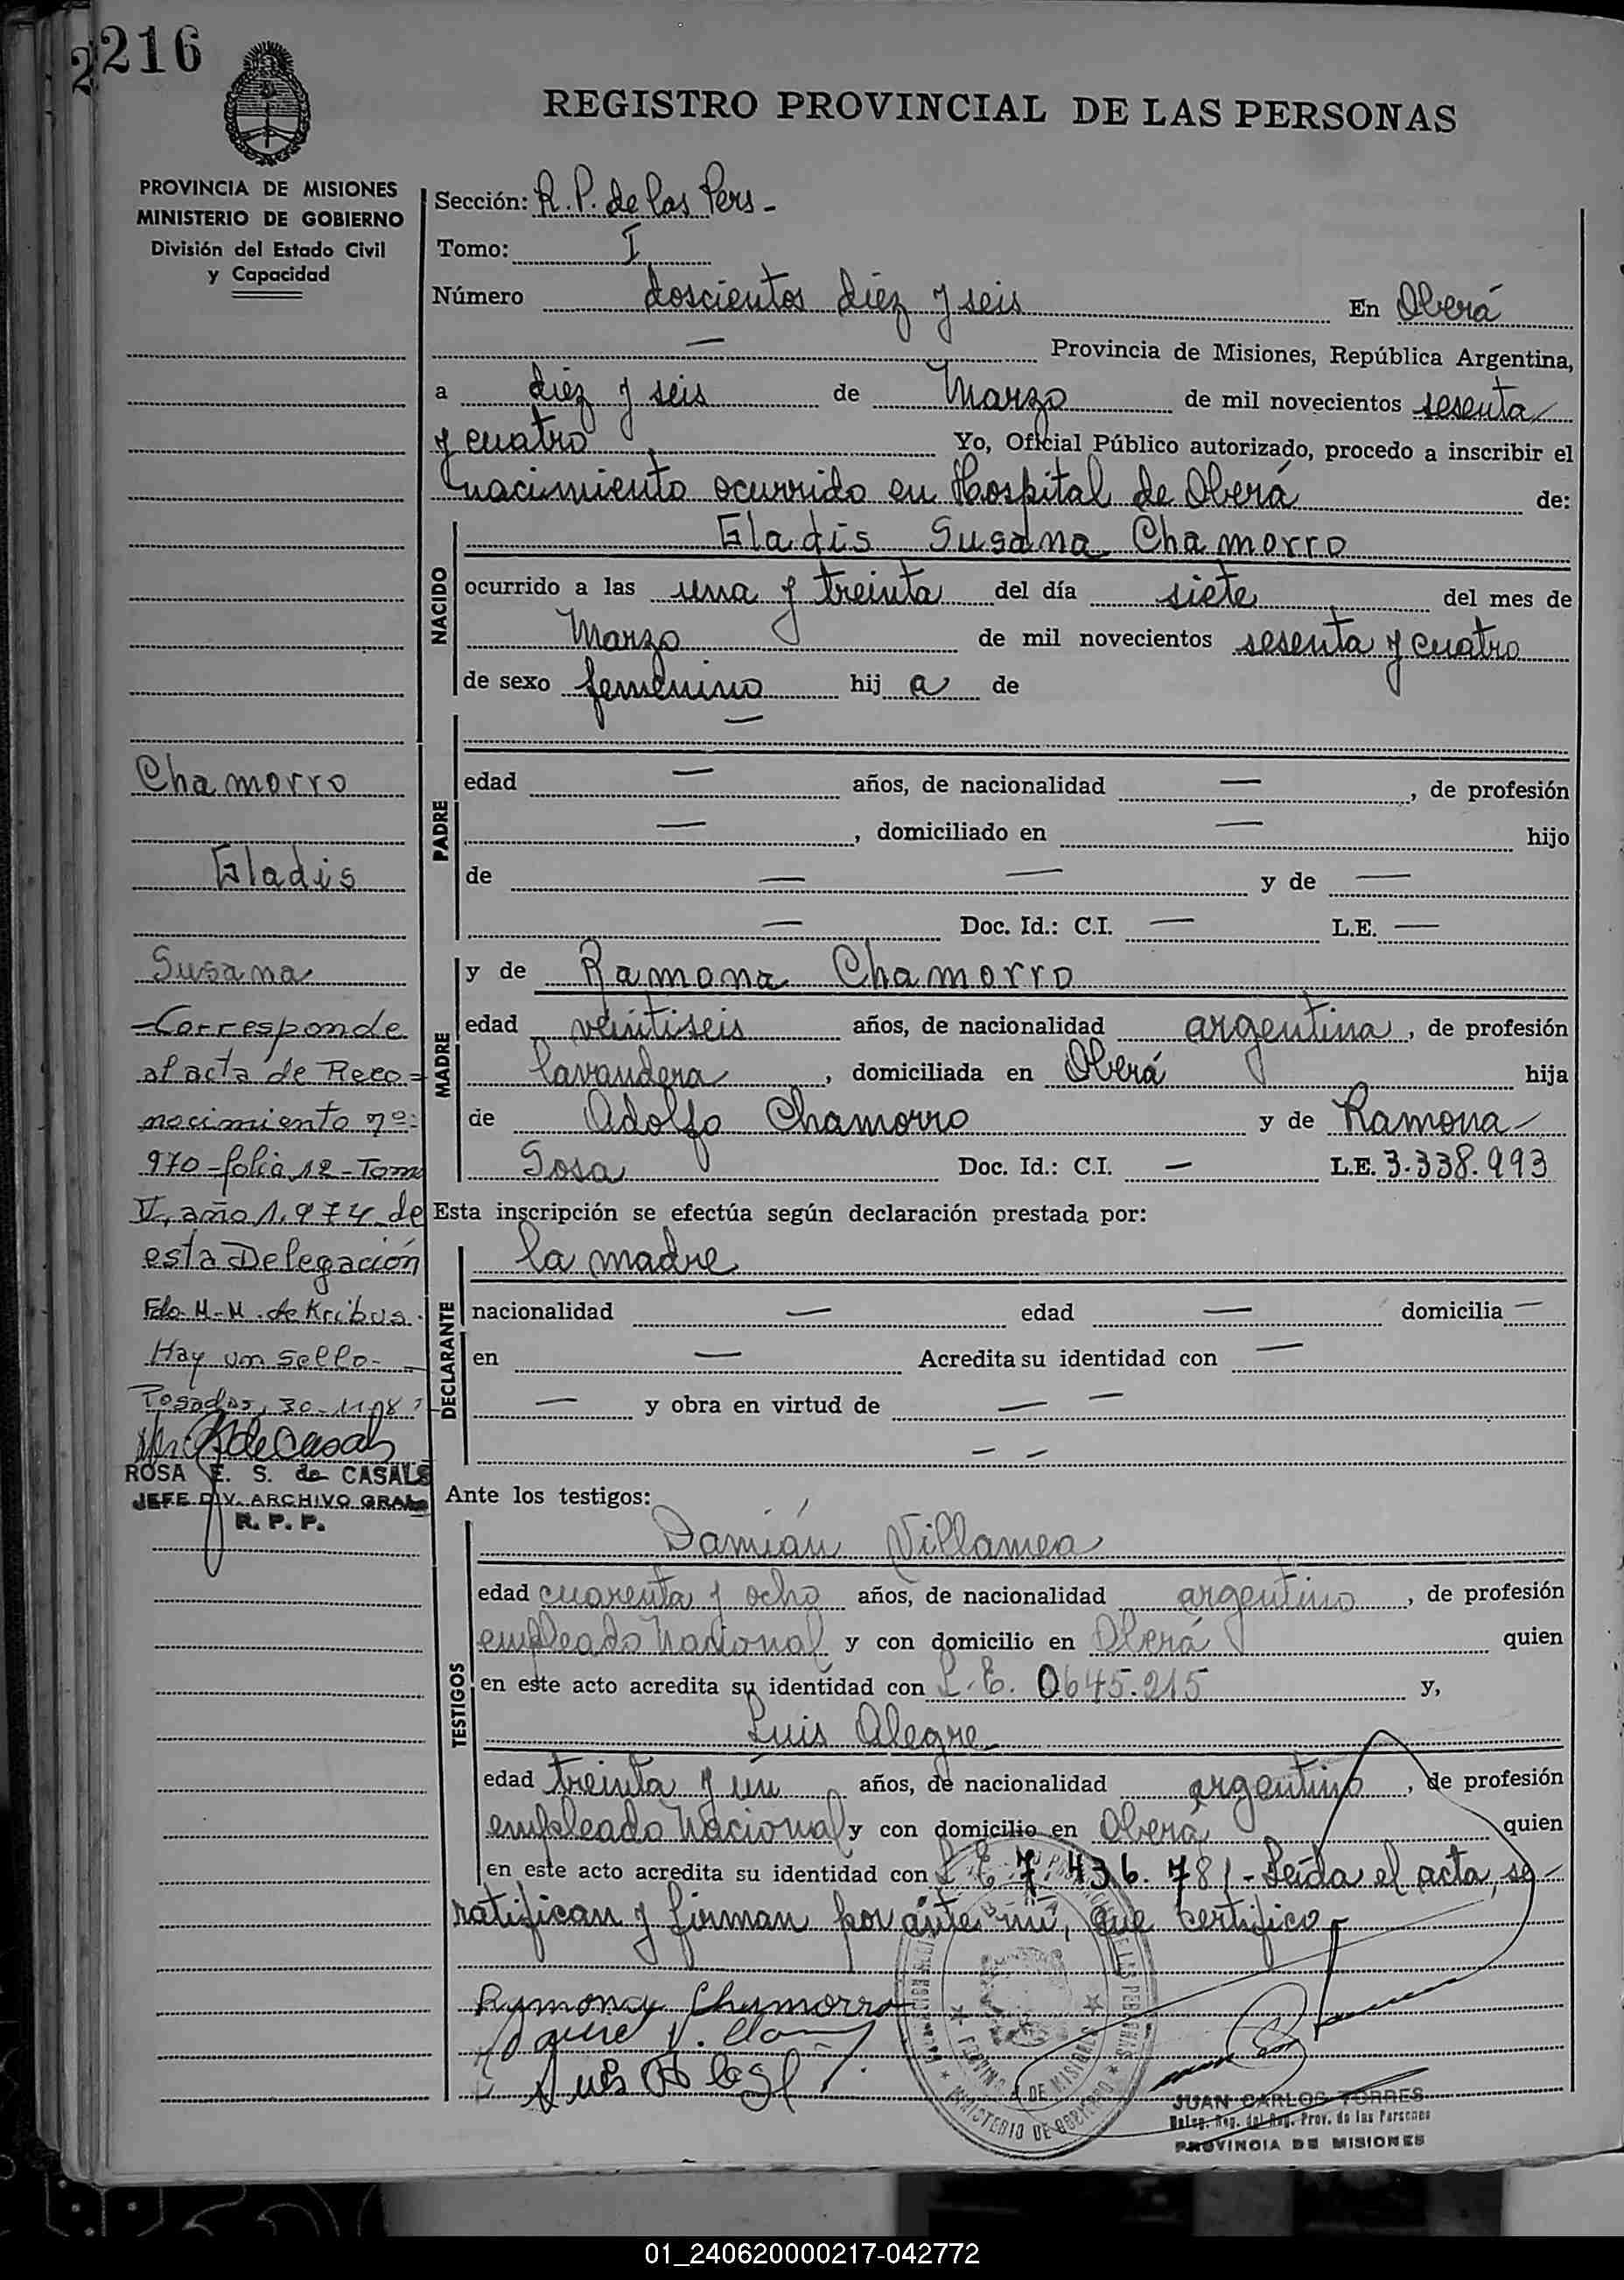 216
REGISTRO PROVINCIAL DE LAS PERSONAS
PROVINCIA DE MISIONES
MINISTERIO DE GOBIERNO
División del Estado Civil
y Capacidad
Chamorro
Gladis
Susana
Corresponde
al acta de Reco=
nocimiento nº:
970-folio 12-Tomo
II, año 1.974 de
esta Delegación
Fdo. M-M. de Kribus.
Hay un sello-
Posadas, 30-11-
ROSA E. S. de CASALS
JEFE DIV. ARCHIVO GRAL
R. P. P.
Sección: R. P. de las Pers-
Tomo: I
Número doscientos diez y seis En Oberá
— Provincia de Misiones, República Argentina,
a diez y seis de Marzo de mil novecientos sesenta
y cuatro Yo, Oficial Público autorizado, procedo a inscribir el
nacimiento ocurrido en Hospital de Oberá de:
NACIDO
Gladis Susana Chamorro
ocurrido a las una y treinta del día siete del mes de
Marzo de mil novecientos sesenta y cuatro
de sexo femenino hij a de
PADRE
—
edad — años, de nacionalidad —, de profesión
—, domiciliado en — hijo
de — — y de —
— Doc. Id.: C.I. — L.E. —
MADRE
y de Ramona Chamorro
edad veintiseis años, de nacionalidad argentina, de profesión
lavandera, domiciliada en Oberá hija
de Adolfo Chamorro y de Ramona
Sosa Doc. Id.: C.I. — L.E. 3.338.993
Esta inscripción se efectúa según declaración prestada por:
DECLARANTE
la madre
nacionalidad — edad — domicilia —
en — Acredita su identidad con —
— y obra en virtud de — —
— —
Ante los testigos:
TESTIGOS
Damián Villamea
edad cuarenta y ocho años, de nacionalidad argentino, de profesión
empleado Nacional y con domicilio en Oberá quien
en este acto acredita su identidad con L.E. 0645.215 y,
Luis Alegre
edad treinta y un años, de nacionalidad argentino, de profesión
empleado Nacional y con domicilio en Oberá quien
en este acto acredita su identidad con L E 7.436.781- Leída el acta, se
ratifican y firman por ante mí, que certifico
Ramona Chamorro
JUAN CARLOS TORRES
Deleg. Reg. del Reg. Prov. de las Personas
PROVINCIA DE MISIONES
MINISTERIO DE GOBIERNO
01_240620000217-042772